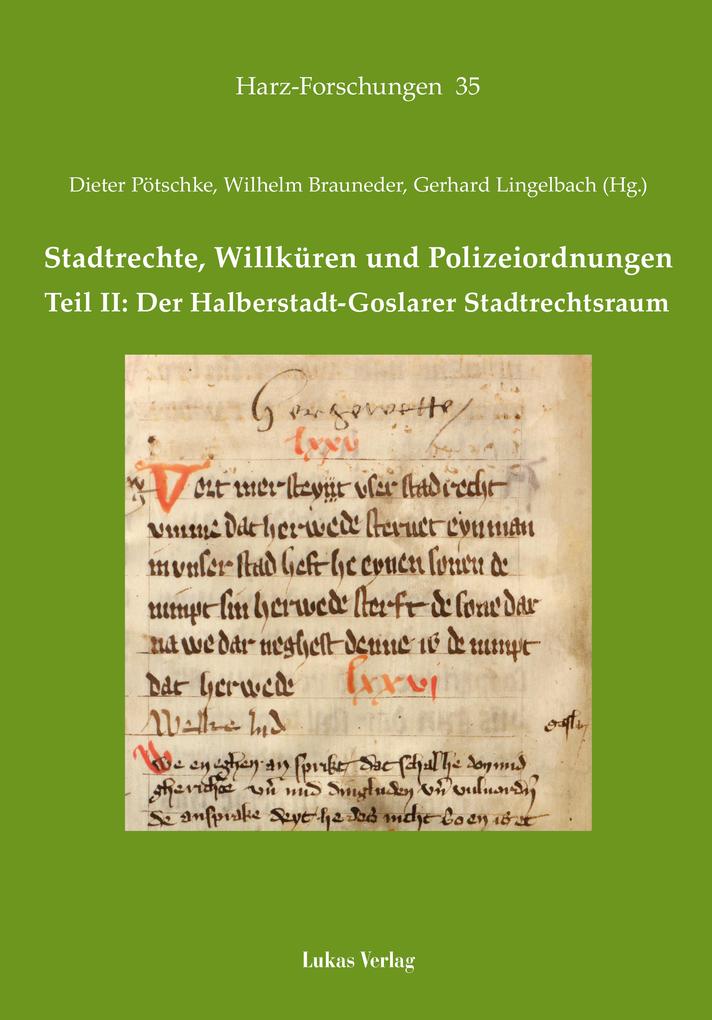 Harz-Forschungen 35
Dieter Pötschke, Wilhelm Brauneder, Gerhard Lingelbach (Hg.)
Stadtrechte, Willküren und Polizeiordnungen
Teil II: Der Halberstadt-Goslarer Stadtrechtsraum
Hergewette
lxxv
Vort mer steyt vser stad recht
vmme dat herwede steruet eyn man
in vnser stad heft he eynen sonen de
nimpt sin herwede sterft de sone dar
na we dar neghest denne is de nimpt
dat herwede lxxvi
We en eghen an sprikt dat schal he don mid
gherichte vñ mid dingluden vñ
de ansprake deyt he des nicht so en is et
Lukas Verlag